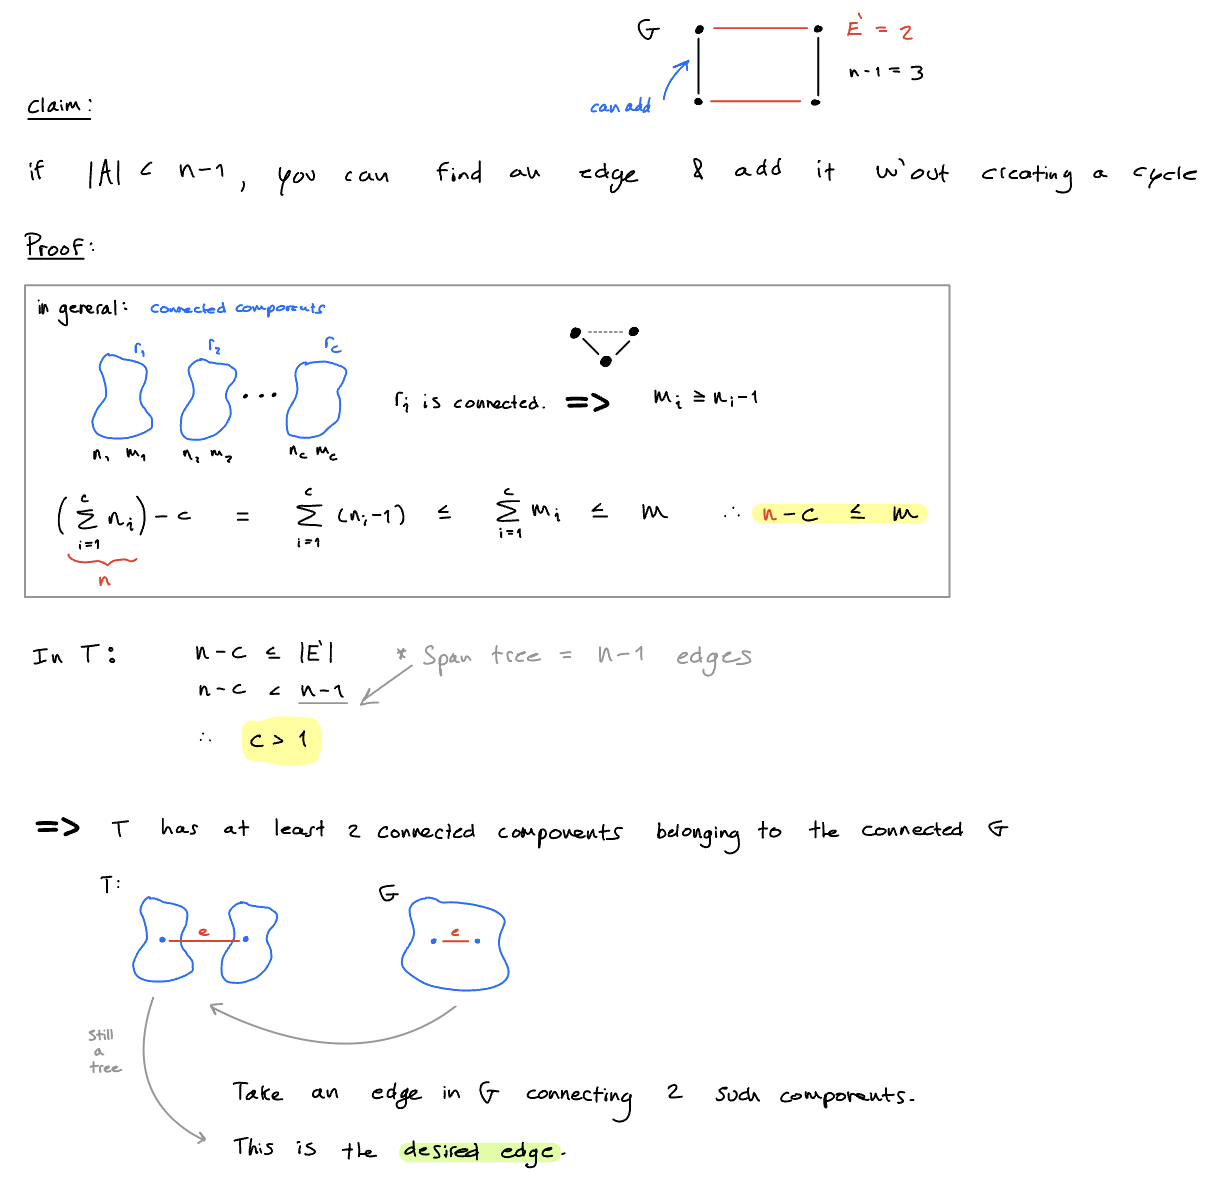 G
E' = 2
n-1 = 3
can add
Claim:
if |A| < n-1, you can find an edge & add it w'out creating a cycle
Proof:
in general: connected components
r₁ r₂ r_c
...
r_i is connected. => m_i ≥ n_i-1
n₁ m₁ n₂ m₂ n_c m_c
(∑_{i=1}^{c} n_i) - c = ∑_{i=1}^{c} (n_i-1) ≤ ∑_{i=1}^{c} m_i ≤ m ∴ n-c ≤ m
n
In T: n-c ≤ |E'| * Span tree = n-1 edges
n-c < n-1
∴ c > 1
=> T has at least 2 connected components belonging to the connected G
T: G
e e
Still
a
tree
Take an edge in G connecting 2 such components.
This is the desired edge.